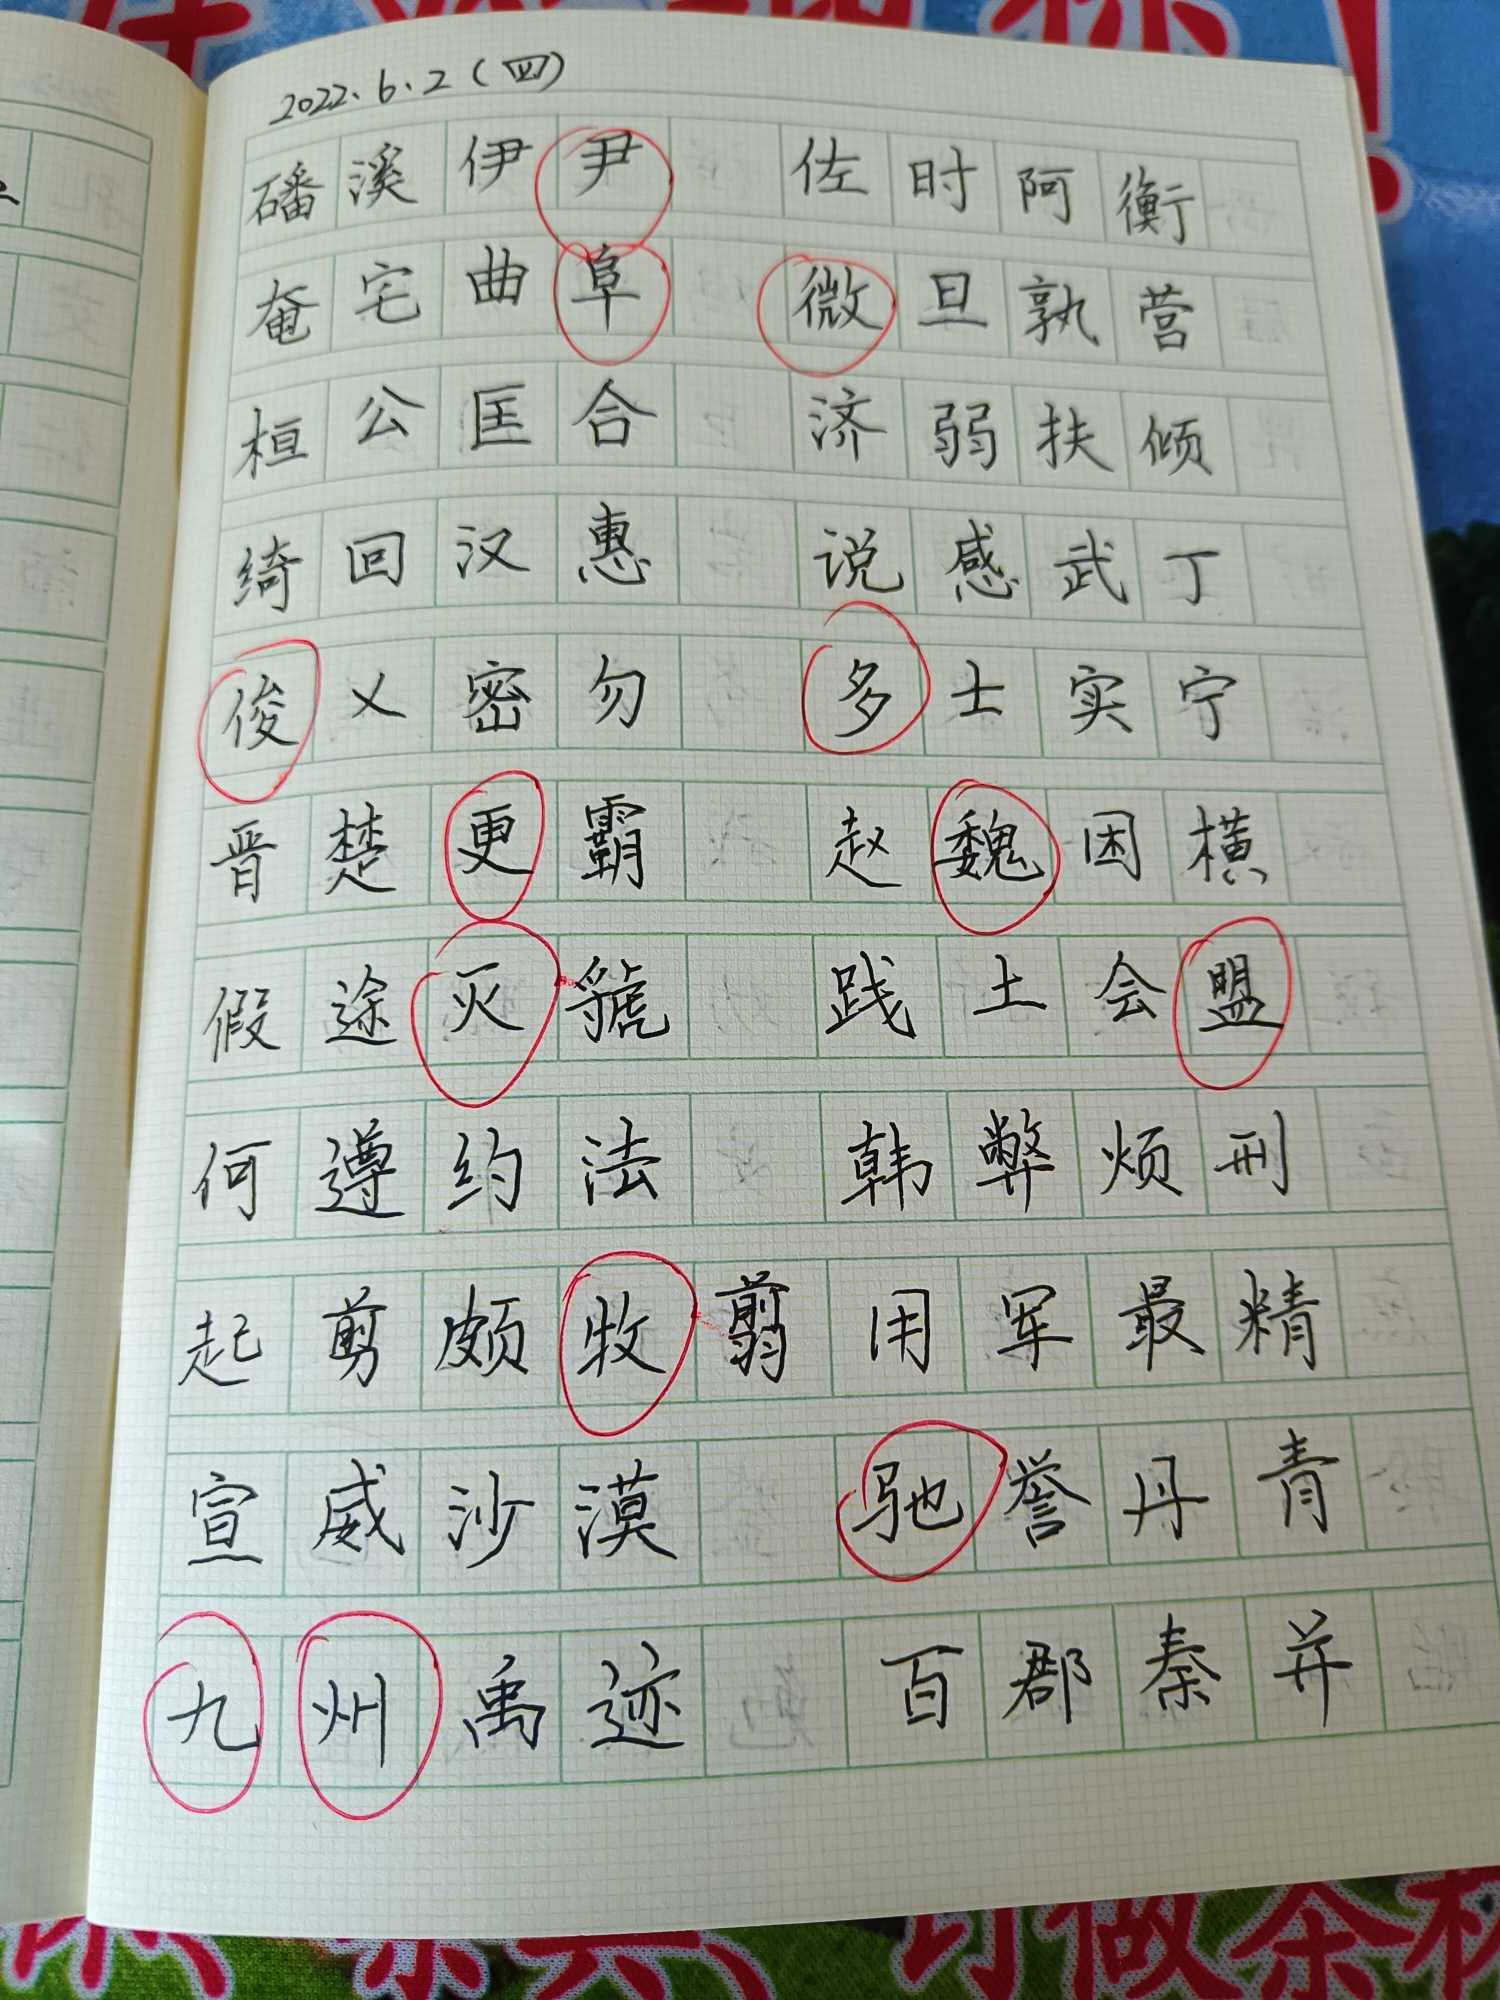 2022.6.2(四)
磻溪伊尹 佐时阿衡
奄宅曲阜 微旦孰营
桓公匡合 济弱扶倾
绮回汉惠 说感武丁
俊乂密勿 多士实宁
晋楚更霸 赵魏困横
假途灭虢 践土会盟
何遵约法 韩弊烦刑
起剪颇牧翦用军最精
宣威沙漠 驰誉丹青
九州禹迹 百郡秦并